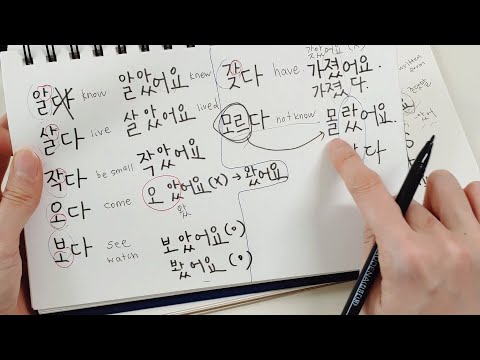 알다 know 알았어요 knew
살다 live 살았어요 lived
작다 be small 작았어요
오다 come 오 았어요(x) → 왔어요
왔
보다 see watch 보았어요(o)
봤어요(o)
갖았어요 (x)
갖다 have 가졌어요.
가졌다.
모르다 not know 몰랐어요.
다